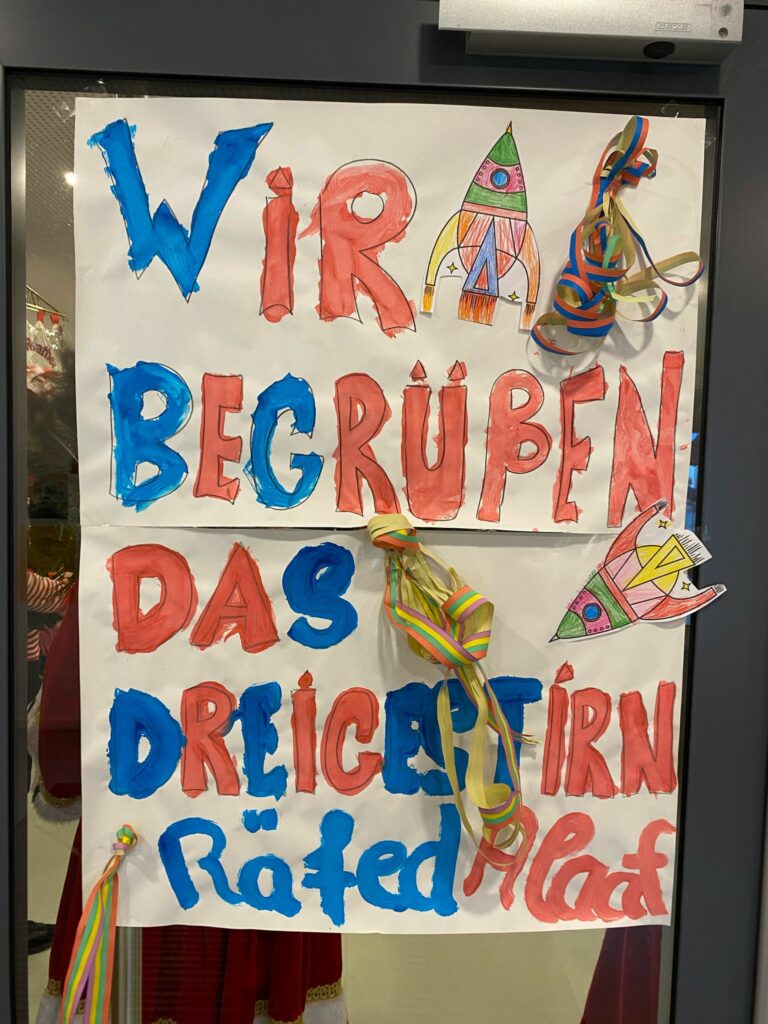 WiR
BEGRÜßEN
DAS
DREiCESTiRN
Räfed Alaaf